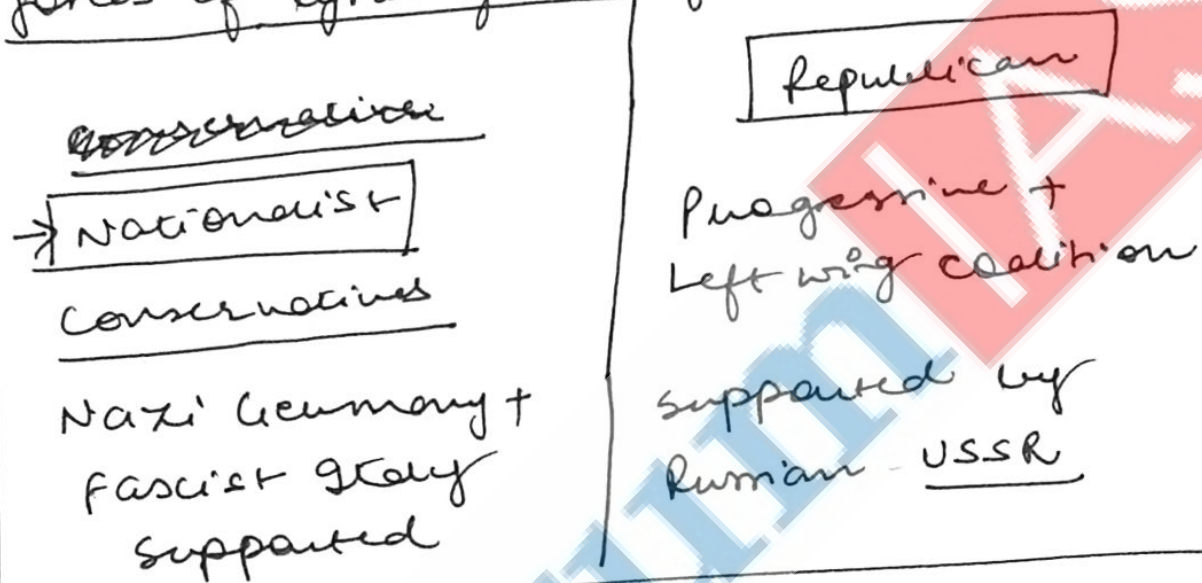 forces of
Nationalist
Conservatives
Nazi Germany +
Fascist Italy
supported
Republican
Progressive +
Left wing coalition
supported by
Russian - USSR